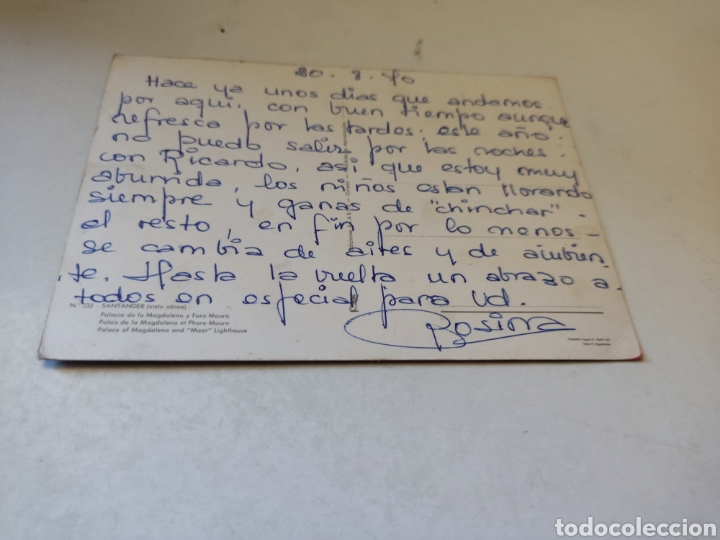 20.8.70
Hace ya unos dias que andamos
por aqui, con buen tiempo aunque
refresca por las tardes. este año
no puedo salir por las noches
con Ricardo, asi que estoy muy
aburrida, los niños estan llorando
siempre y ganas de "chinchar" -
el resto, en fin por lo menos -
se cambia de aires y de ambien
te. Hasta la vuelta un abrazo a
todos en especial para Ud.
Rosina
N.° 333 - SANTANDER (vista aérea)
Palacio de la Magdalena y Faro Mouro
Palais de la Magdalena et Phare Mouro
Palace of Magdalena and "Moor" Lighthouse
todocoleccion